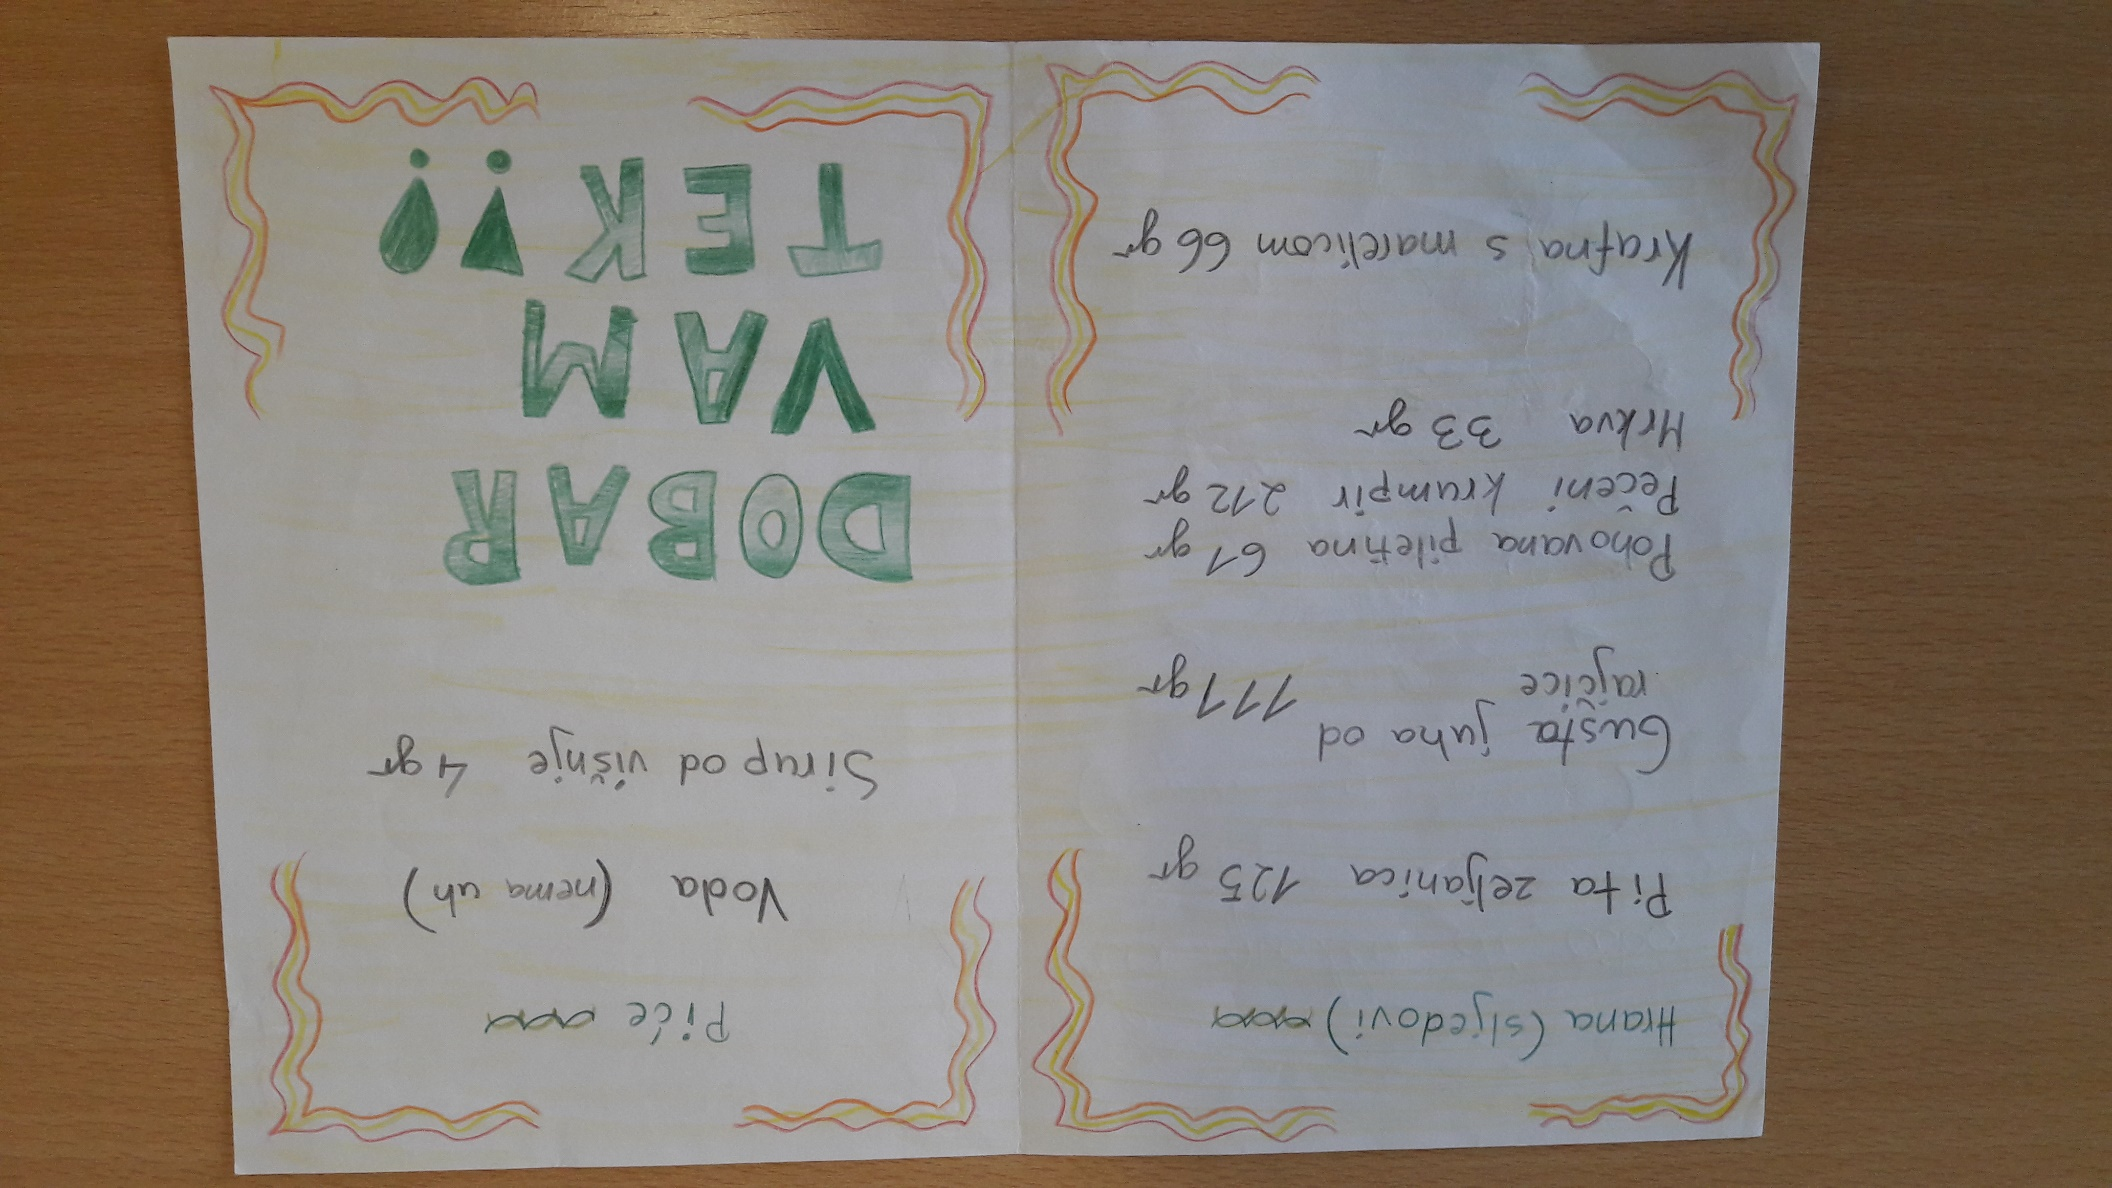 Hrana (sljedovi)
Pita zeljanica 125 gr
Gušta juha od 111 gr
rajčice
Pohovana piletina 61 gr
Pečeni krumpir 212 gr
Mrkva 33 gr
Krafna s marelicom 66 gr
Piće
Voda (nema uh)
Sirup od višnje 4 gr
DOBAR
VAM
TEK!!